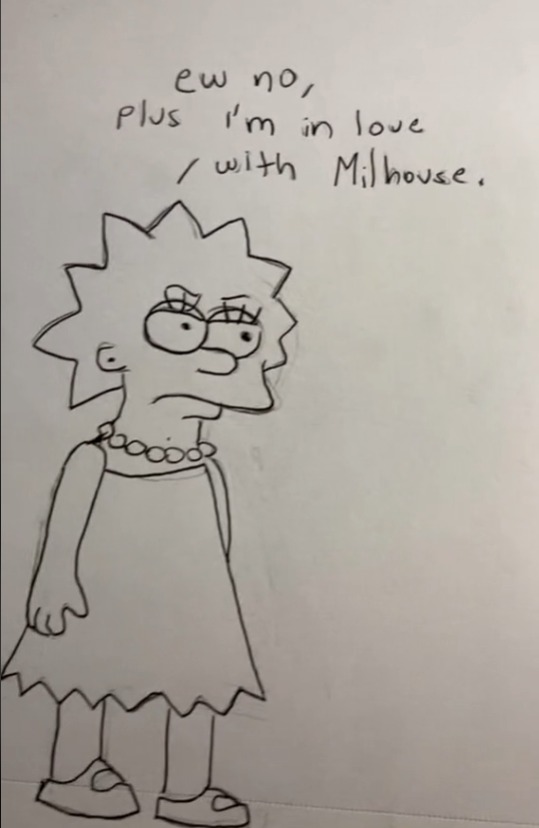 ew no,
plus i'm in love
with Milhouse.